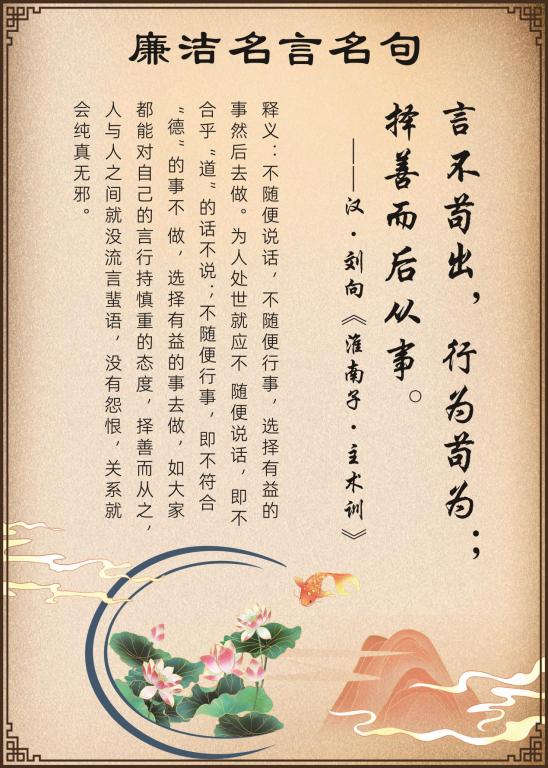 廉洁名言名句
言不苟出，行为苟为；
择善而后从事。
——汉·刘向《淮南子·主术训》
释义：不随便说话，不随便行事，选择有益的
事然后去做。为人处世就应不 随便说话，即不
合乎“道”的话不说；不随便行事，即不符合
“德”的事不 做，选择有益的事去做，如大家
都能对自己的言行持慎重的态度，择善而从之，
人与人之间就没流言蜚语，没有怨恨，关系就
会纯真无邪。